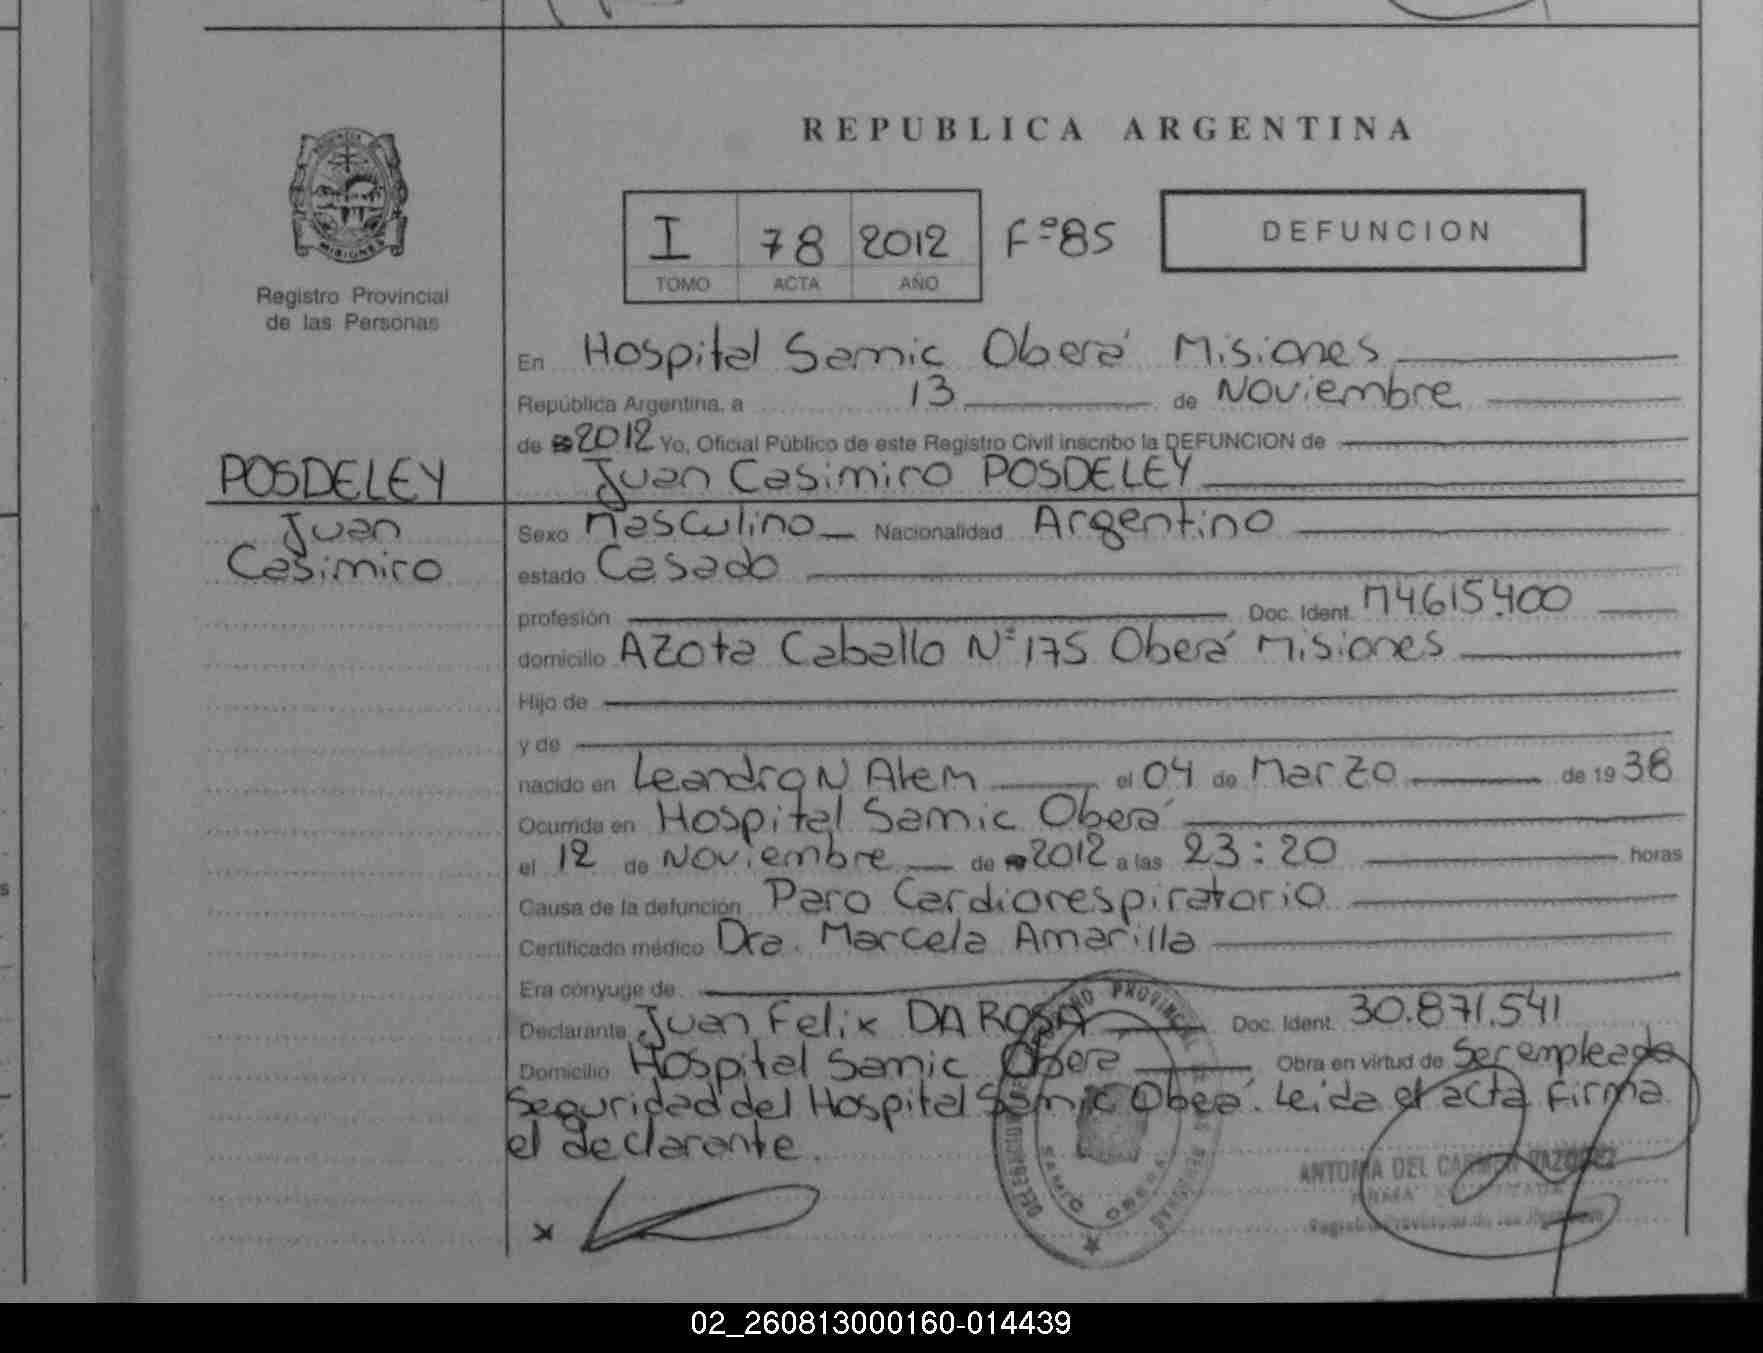 REPUBLICA ARGENTINA
MISIONES
Registro Provincial
de las Personas
I 78 2012 Fº 85
TOMO ACTA AÑO
DEFUNCION
En Hospital Samic Oberá Misiones
República Argentina, a 13 de Noviembre
de 2012 Yo, Oficial Público de este Registro Civil inscribo la DEFUNCION de
Juan Casimiro POSDELEY
POSDELEY
Juan
Casimiro
Sexo Masculino Nacionalidad Argentino
estado Casado
profesión Doc. Ident. M4.615.400
domicilio Azota Caballo Nº 175 Oberá Misiones
Hijo de
y de
nacido en Leandro N Alem el 04 de Marzo de 1938
Ocurrida en Hospital Samic Oberá
el 12 de Noviembre de 2012 a las 23:20 horas
Causa de la defunción Paro Cardiorespiratorio
Certificado médico Dra. Marcela Amarilla
Era cónyuge de
Declarante Juan Felix DA ROSA Doc. Ident. 30.871.541
Domicilio Hospital Samic Obera Obra en virtud de Ser empleado
Seguridad del Hospital Samic Oberá. Leida el acta firma
el declarante.
x
ANTONIA DEL CARMEN
Registro Provincial de las Personas
02_260813000160-014439